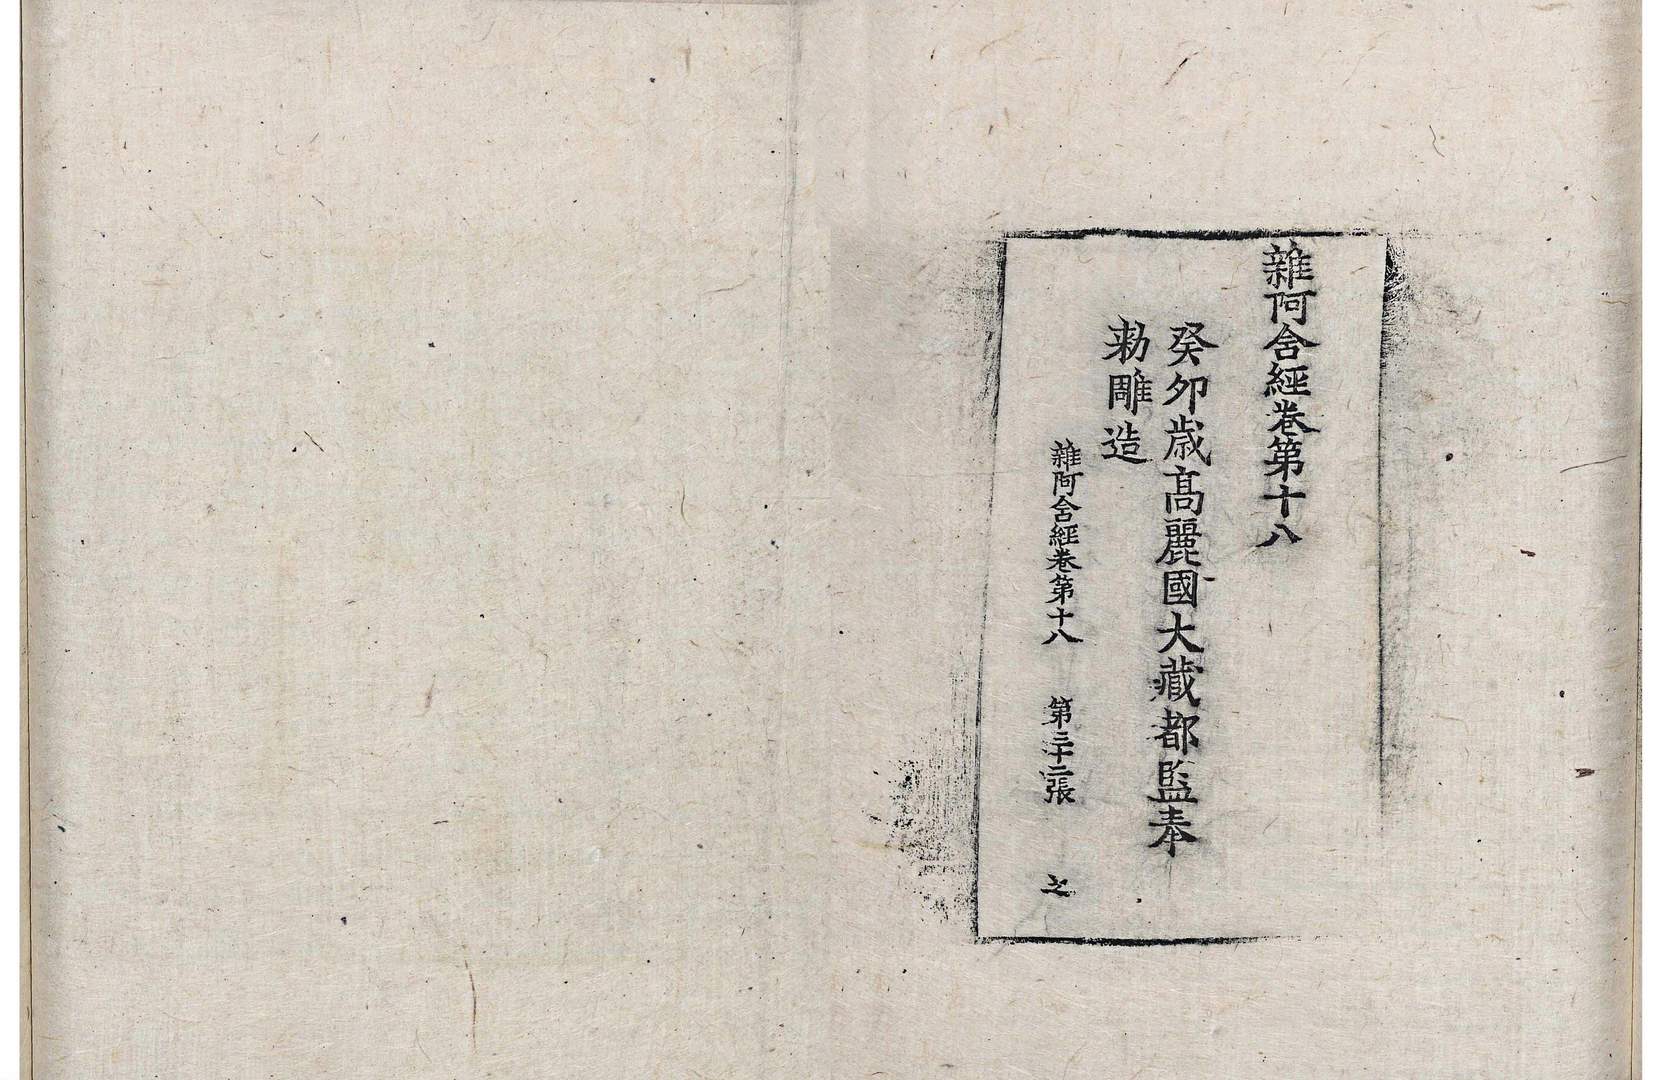 雜阿含經卷第十八
癸卯歲高麗國大藏都監奉
勅雕造
雜阿含經卷第十八 第三十二張 之